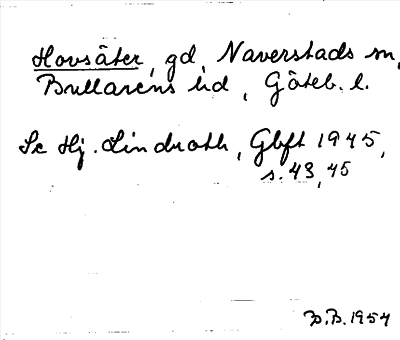 Hovsäter, gd, Naverstads sn,
Bullarens hd, Göteb. l.
Se Hj. Lindroth, Gbft 1945,
s. 43, 45
B.B. 1954